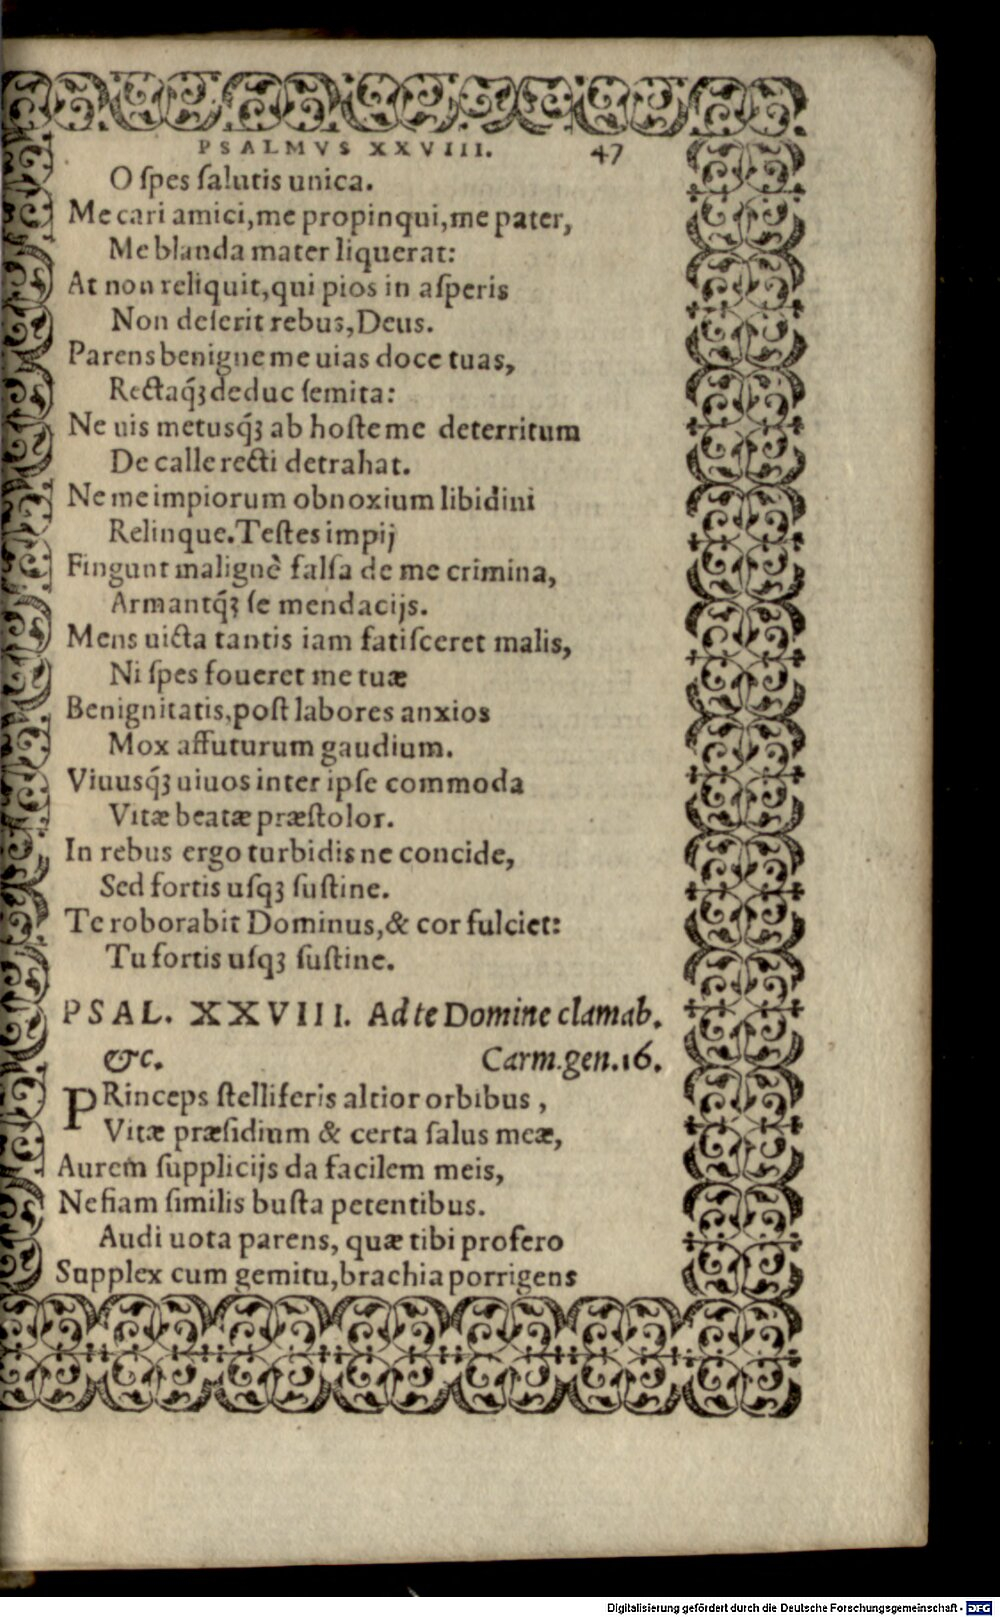 PSALMVS XXVIII. 47
O ſpes ſalutis unica.
Me cari amici, me propinqui, me pater,
Me blanda mater liquerat:
At non reliquit, qui pios in aſperis
Non deſerit rebus, Deus.
Parens benigne me uias doce tuas,
Rectaq́ꝫ deduc ſemita:
Ne uis metusq́ꝫ ab hoſte me deterritum
De calle recti detrahat.
Ne me impiorum obnoxium libidini
Relinque. Teſtes impij
Fingunt malignè falſa de me crimina,
Armantq́ꝫ ſe mendacijs.
Mens uicta tantis iam fatiſceret malis,
Ni ſpes foueret me tuæ
Benignitatis, poſt labores anxios
Mox affuturum gaudium.
Viuusq́ꝫ uiuos inter ipſe commoda
Vitæ beatæ præſtolor.
In rebus ergo turbidis ne concide,
Sed fortis uſqꝫ ſuſtine.
Te roborabit Dominus, & cor fulciet:
Tu fortis uſqꝫ ſuſtine.
PSAL. XXVIII. Ad te Domine clamab.
&c. Carm. gen. 16.
PRinceps ſtelliferis altior orbibus,
Vitæ præſidium & certa ſalus meæ,
Aurem ſupplicijs da facilem meis,
Ne fiam ſimilis buſta petentibus.
Audi uota parens, quæ tibi profero
Supplex cum gemitu, brachia porrigens
Digitalisierung gefördert durch die Deutsche Forschungsgemeinschaft - DFG